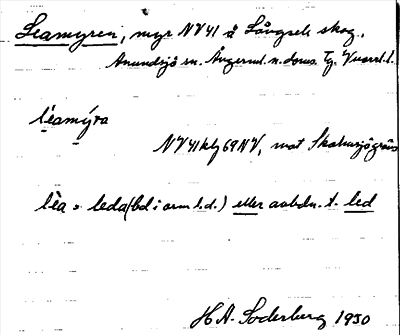 Leamyren, myr NV41 å Långsele skog,
Anundsjö sn. Ångerml. n. doms. Tg. V
léamýra
NV41 kbg 69 NV, mot Skalmsjögräns
lèa = leda (bd i orm l.d.) eller avbdn. t. led
H. A. Söderberg 1930